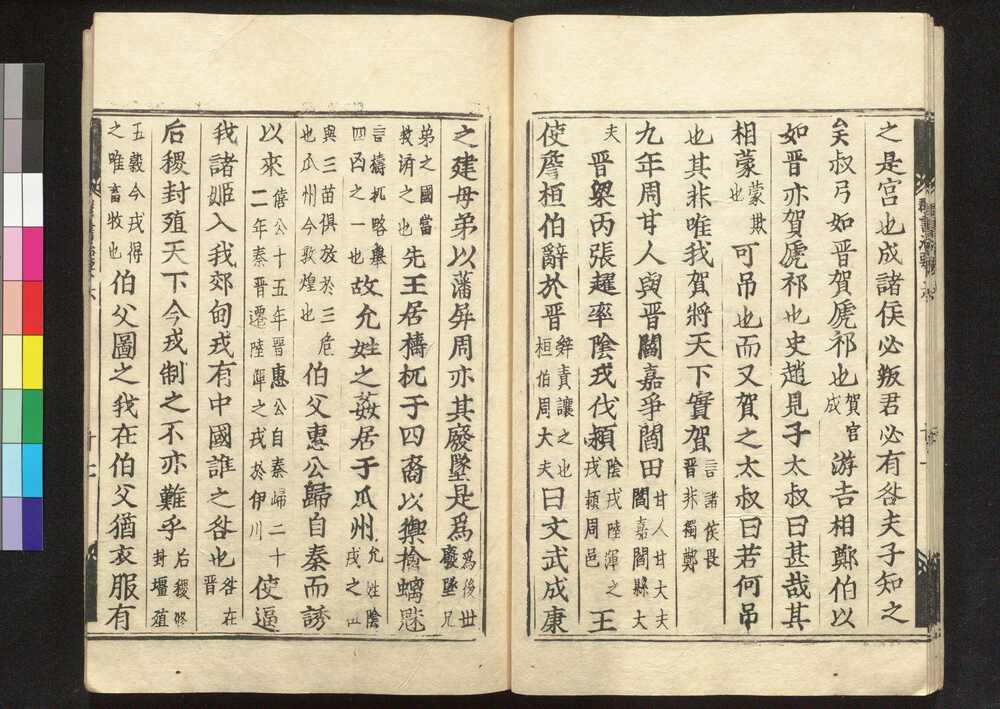 之是宮也成諸侯必叛君必有咎夫子知之
矣叔弓如晉賀虒祁也賀宮成游吉相鄭伯以
如晉亦賀虒祁也史趙見子太叔曰甚哉其
相蒙蒙欺也可吊也而又賀之太叔曰若何吊
也其非唯我賀將天下實賀言諸侯畏晉非獨鄭
九年周甘人與晉閻嘉爭閻田甘人甘大夫閻嘉閻縣大
夫晉梁丙張趯率陰戎伐潁陰戎陸渾之戎潁周邑王
使詹桓伯辭於晉辭責讓之也桓伯周大夫曰文武成康
之建母弟以藩屏周亦其廢墜是爲爲後世廢墜兄
弟之國當救濟之也先王居檮杌于四裔以禦螭魅
言檮杌略舉四凶之一也故允姓之姦居于瓜州允姓陰戎之
與三苗俱放於三危也瓜州今敦煌也伯父惠公歸自秦而誘
以來僖公十五年晉惠公自秦歸二十二年秦晉遷陸渾之戎於伊川使逼
我諸姬入我郊甸戎有中國誰之咎也咎在晉
后稷封殖天下今戎制之不亦難乎后稷修封壃殖
五穀今戎得之唯畜牧也伯父圖之我在伯父猶衣服有